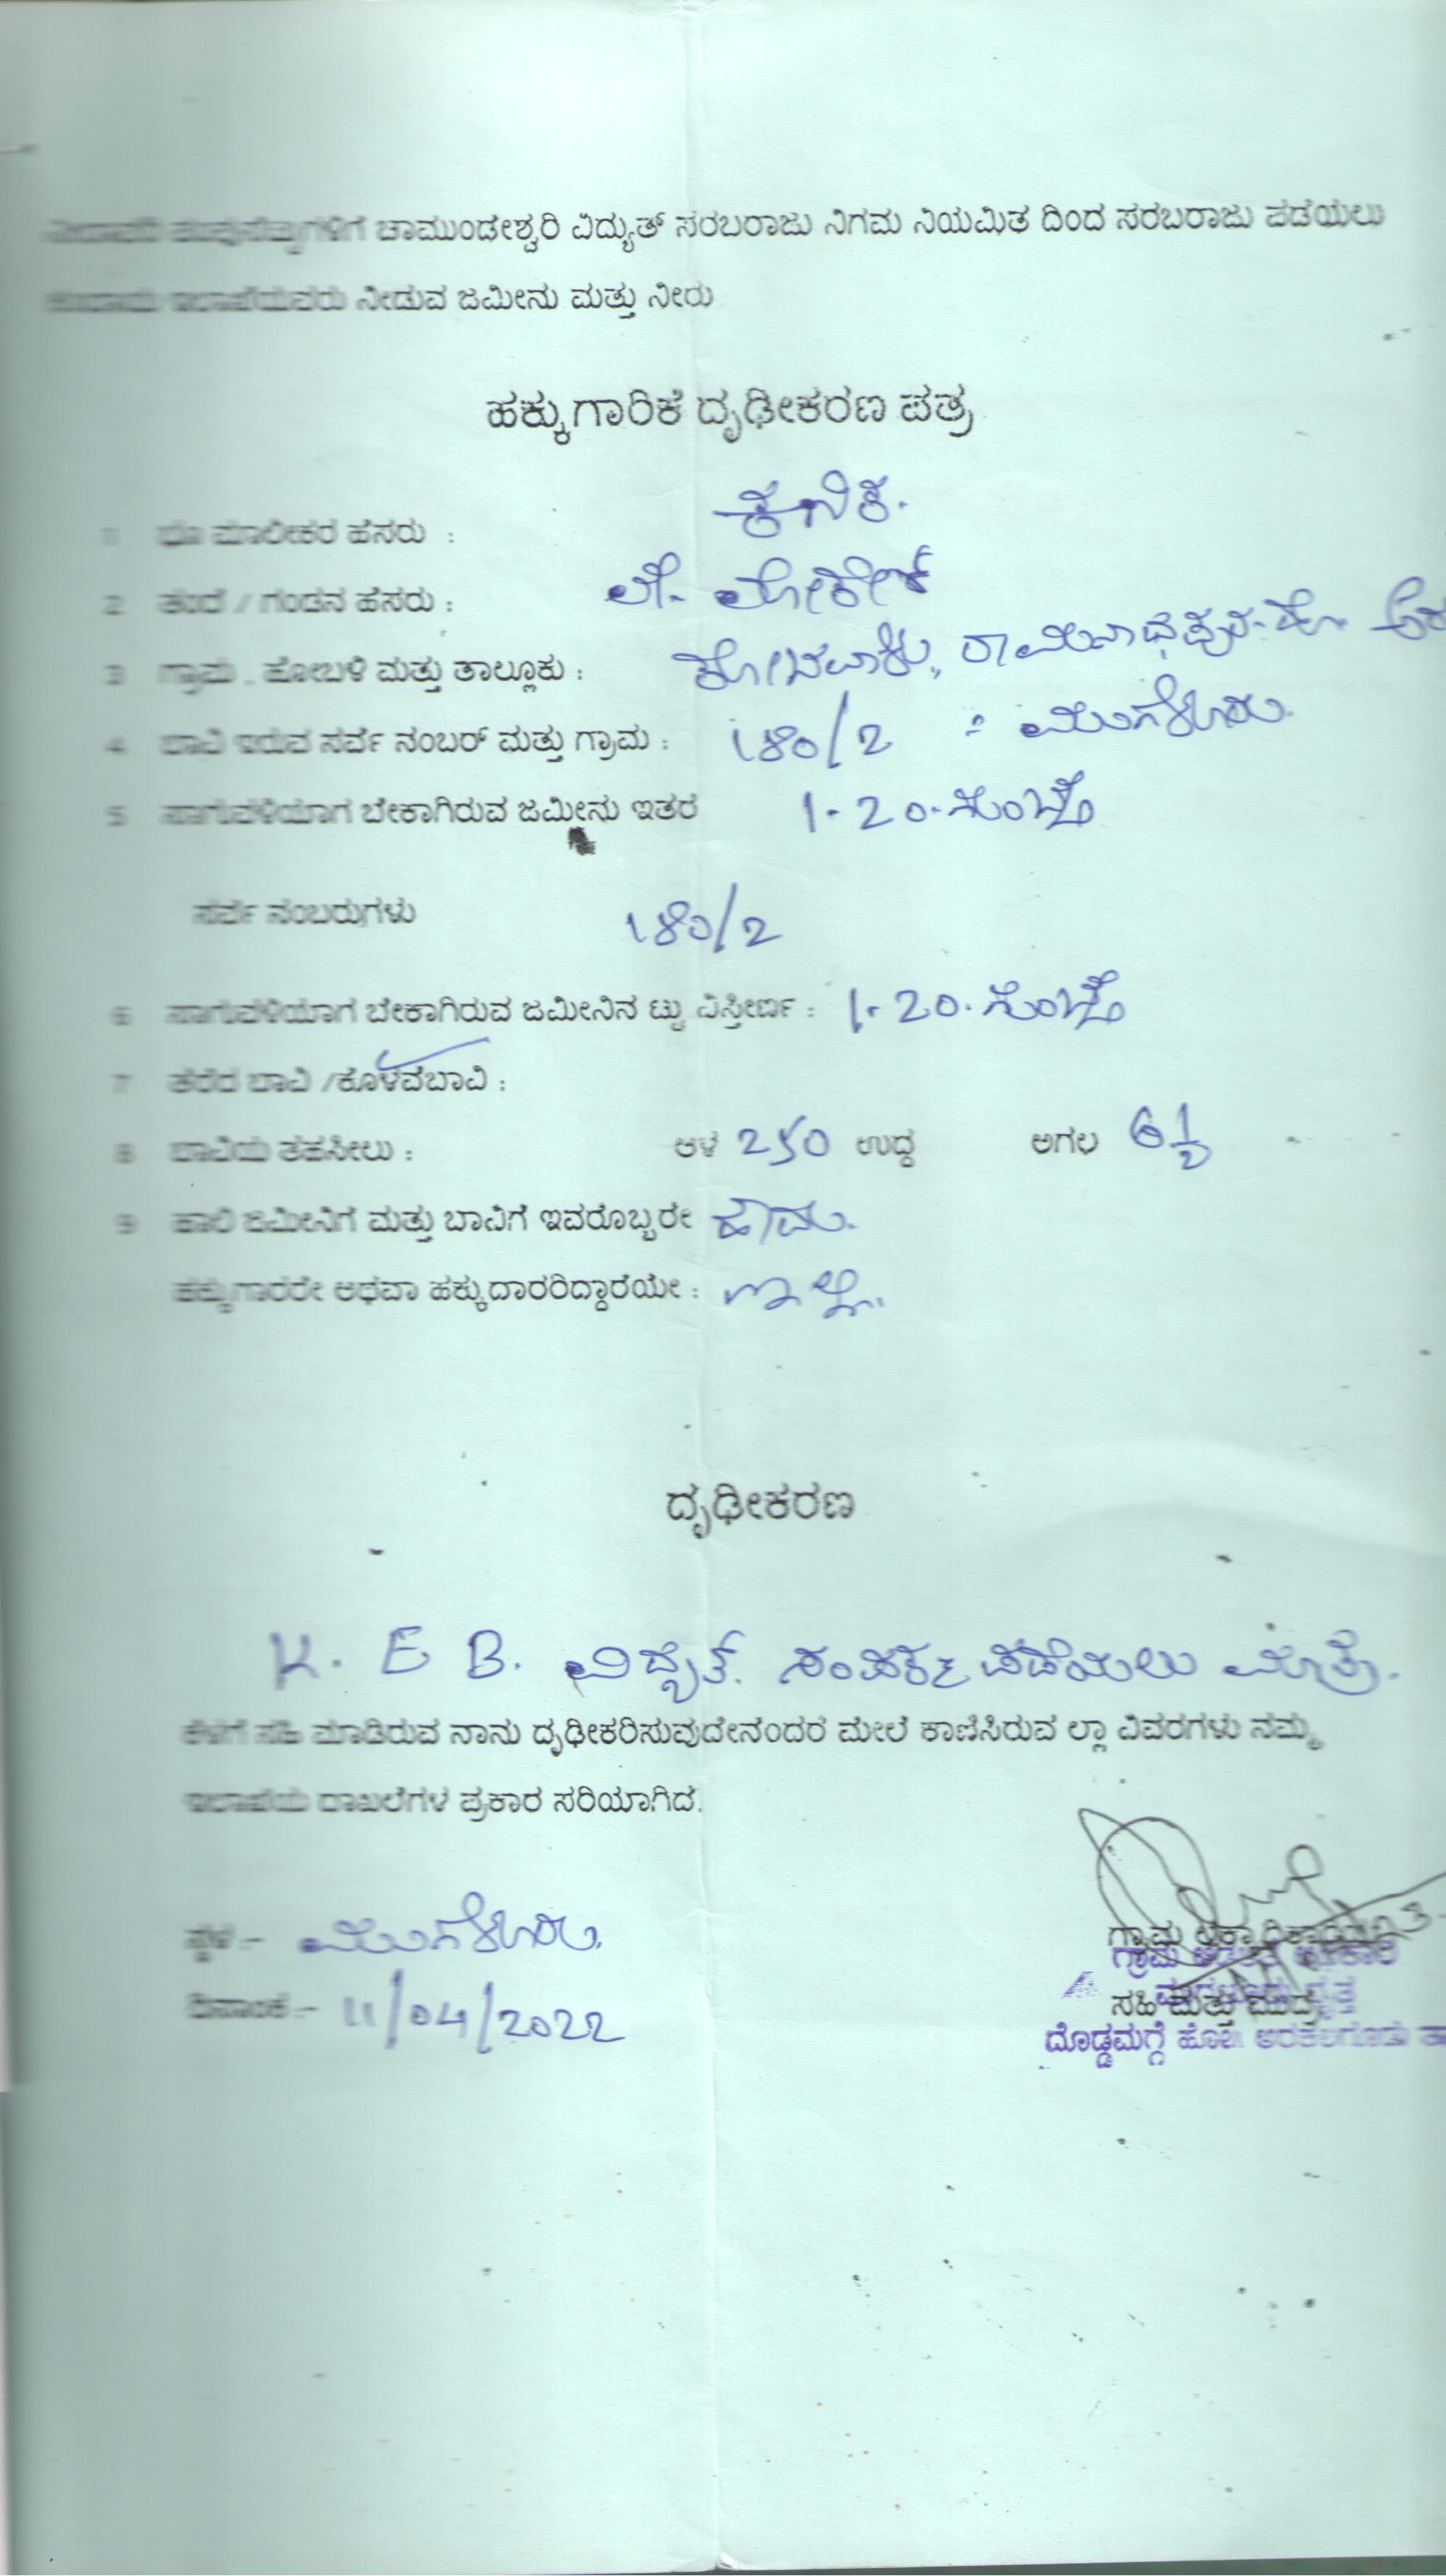 ನೀರಾವರಿ ಪಂಪುಸೆಟ್ಟುಗಳಿಗೆ ಚಾಮುಂಡೇಶ್ವರಿ ವಿದ್ಯುತ್ ಸರಬರಾಜು ನಿಗಮ ನಿಯಮಿತ ದಿಂದ ಸರಬರಾಜು ಪಡೆಯಲು
ಕಂದಾಯ ಇಲಾಖೆಯವರು ನೀಡುವ ಜಮೀನು ಮತ್ತು ನೀರು
ಹಕ್ಕುಗಾರಿಕೆ ದೃಢೀಕರಣ ಪತ್ರ
1 ಭೂ ಮಾಲೀಕರ ಹೆಸರು : ಕನಿಕ.
2 ತಂದೆ / ಗಂಡನ ಹೆಸರು : ಲೇ. ಲೋಕೇಶ್
3 ಗ್ರಾಮ . ಹೋಬಳಿ ಮತ್ತು ತಾಲ್ಲೂಕು : ರಾಮನಾಥಪುರ. ಹೋ.
4 ಬಾವಿ ಇರುವ ಸರ್ವೆ ನಂಬರ್ ಮತ್ತು ಗ್ರಾಮ : 180/2 : ಮುಗಳೂರು.
5 ಸಾಗುವಳಿಯಾಗ ಬೇಕಾಗಿರುವ ಜಮೀನು ಇತರ 1-20.ಗುಂಟೆ
ಸರ್ವೆ ನಂಬರುಗಳು 180/2
6 ಸಾಗುವಳಿಯಾಗ ಬೇಕಾಗಿರುವ ಜಮೀನಿನ ಟ್ಟು ವಿಸ್ತೀರ್ಣ : 1-20.ಗುಂಟೆ
7 ತೆರೆದ ಬಾವಿ /ಕೊಳವೆಬಾವಿ :
8 ಬಾವಿಯ ತಹಸೀಲು : ಆಳ 250 ಉದ್ದ ಅಗಲ 6½
9 ಹಾಲಿ ಜಮೀನಿಗೆ ಮತ್ತು ಬಾವಿಗೆ ಇವರೊಬ್ಬರೇ ಹೌದು.
ಹಕ್ಕುಗಾರರೇ ಅಥವಾ ಹಕ್ಕುದಾರರಿದ್ದಾರೆಯೇ : ಇಲ್ಲ.
ದೃಢೀಕರಣ
K. E B. ವಿದ್ಯುತ್. ಸಂಪರ್ಕ ಪಡೆಯಲು ಮಾತ್ರ.
ಕೆಳಗೆ ಸಹಿ ಮಾಡಿರುವ ನಾನು ದೃಢೀಕರಿಸುವುದೇನಂದರೆ ಮೇಲೆ ಕಾಣಿಸಿರುವ ಲ್ಲಾ ವಿವರಗಳು ನಮ್ಮ
ಇಲಾಖೆಯ ದಾಖಲೆಗಳ ಪ್ರಕಾರ ಸರಿಯಾಗಿದೆ.
ಸ್ಥಳ :- ಮುಗಳೂರು.
ಗ್ರಾಮ ಲೆಕ್ಕಾಧಿಕಾರಿಯ
ಗ್ರಾಮ ಆಡಳಿತ ಅಧಿಕಾರಿ
ದಿನಾಂಕ :- 11/04/2022
ಸಹಿ ಮತ್ತು ಮುದ್ರೆ
ದೊಡ್ಡಮಗ್ಗೆ ಹೋ. ಅರಕಲಗೂಡು ತಾ